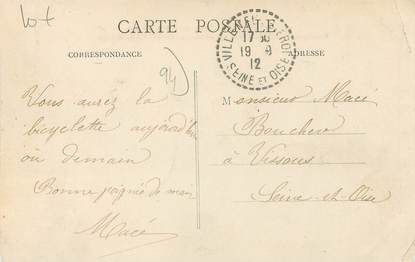 lot
CARTE POSTALE
CORRESPONDANCE
ADRESSE
17
19 9
12
SEINE ET OISE
94
Vous aurez la
bicyclette aujourd'hui
ou demain
Bonne poignée de main
Macé
Monsieur Macé
Boucher
à Wissous
Seine-et-Oise